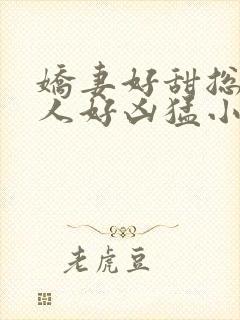 嬌妻好甜總
人好凶猛小
老虎豆